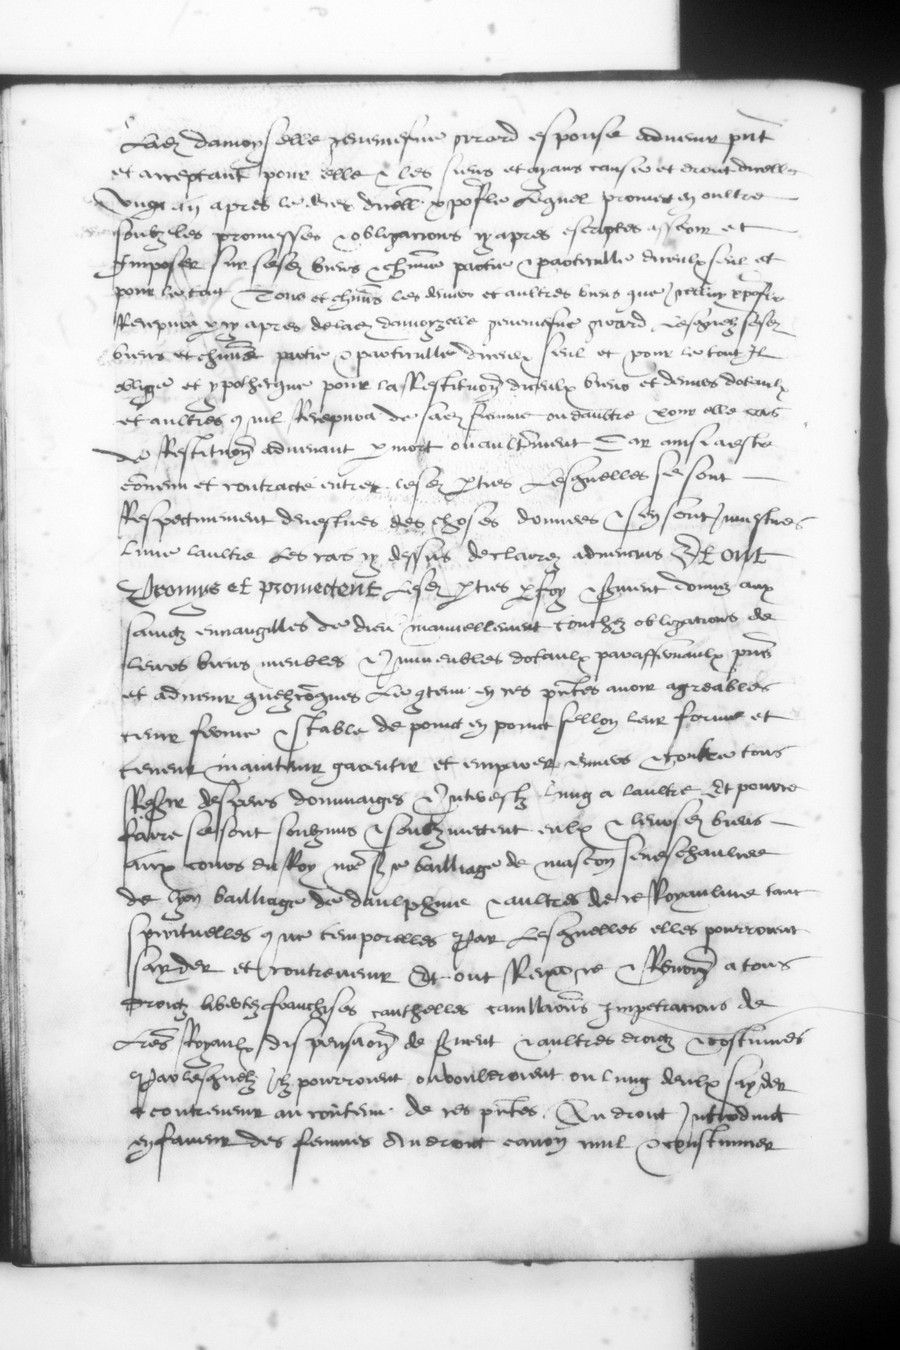 Lad damoyselle genevefve girard espouse advenir pnt
et acceptant pour elle & les siens et ayans cause et droit dicelle
Ung an apres le dces dicell xpofle Lequel promect en oultre
soubz les promesses & obligacions cy apres escriptes asseoir et
Imposer sur sesd biens & chune partie & particulle diceulx seul et
pour le tout Tous et chuns les deniers et aultres biens que icelluy xpofle
Recepvra cy apres de lad damoyzelle genevefve girard Lesquelz sesd
biens et chune partie & particulle diceulx seul et pour le tout Il
oblige et ypotheque pour la Restitucion diceulx biens et deniers dotaulx
et aultres quil Recepvra de sad femme ou daultre pour elle cas
de Restitucion advenant p mort ou aultrement Car ainsi a este
convenu et contracte entre lesd pties Lesquelles se sont
Respectivement devestues des choses donnees & en sont investues
lune laultre Les cas cy dessus declairez advenus Et ont
Promis et promectent Lesd pties p foy & sment donnez aux
sainctz euvangilles de dieu manuellement touchez obligations de
leurs biens meubles & Immeubles dotaulx paraffernaulx pns
et advenir quelzconques Le contenu en ces pntes avoir agreables
tenir ferme & stable de poinct en poinct sellon leur forme et
teneur maintenir garentir et emparer envers & contre tous
Reffer despens dommaiges & Interestz lung a laultre Et pour ce
faire se sont soubzmis & soubzmectent eulx & leursd biens
aux cours du Roy nre sr bailliage de mascon seneschaulcee
de lyon bailliage de daulphine & aultres de ce Royaulme tant
spirituelles que temporelles Par Lesquelles elles pourroient
sayder et contrevenir Et ont Renonce & Renoncent a tous
droitz libertez franchises cauthelles cavillacions Impetracions de
Lres Royaulx dispensacion de sment & aultres droitz & costumes
Par lesquelz Ilz pourroient ou vouldroient ou lung deulx sayder
& contrevenir au contenu de ces pntes Au droit Introduict
en faveur des femmes Au droit canon civil & coustumier